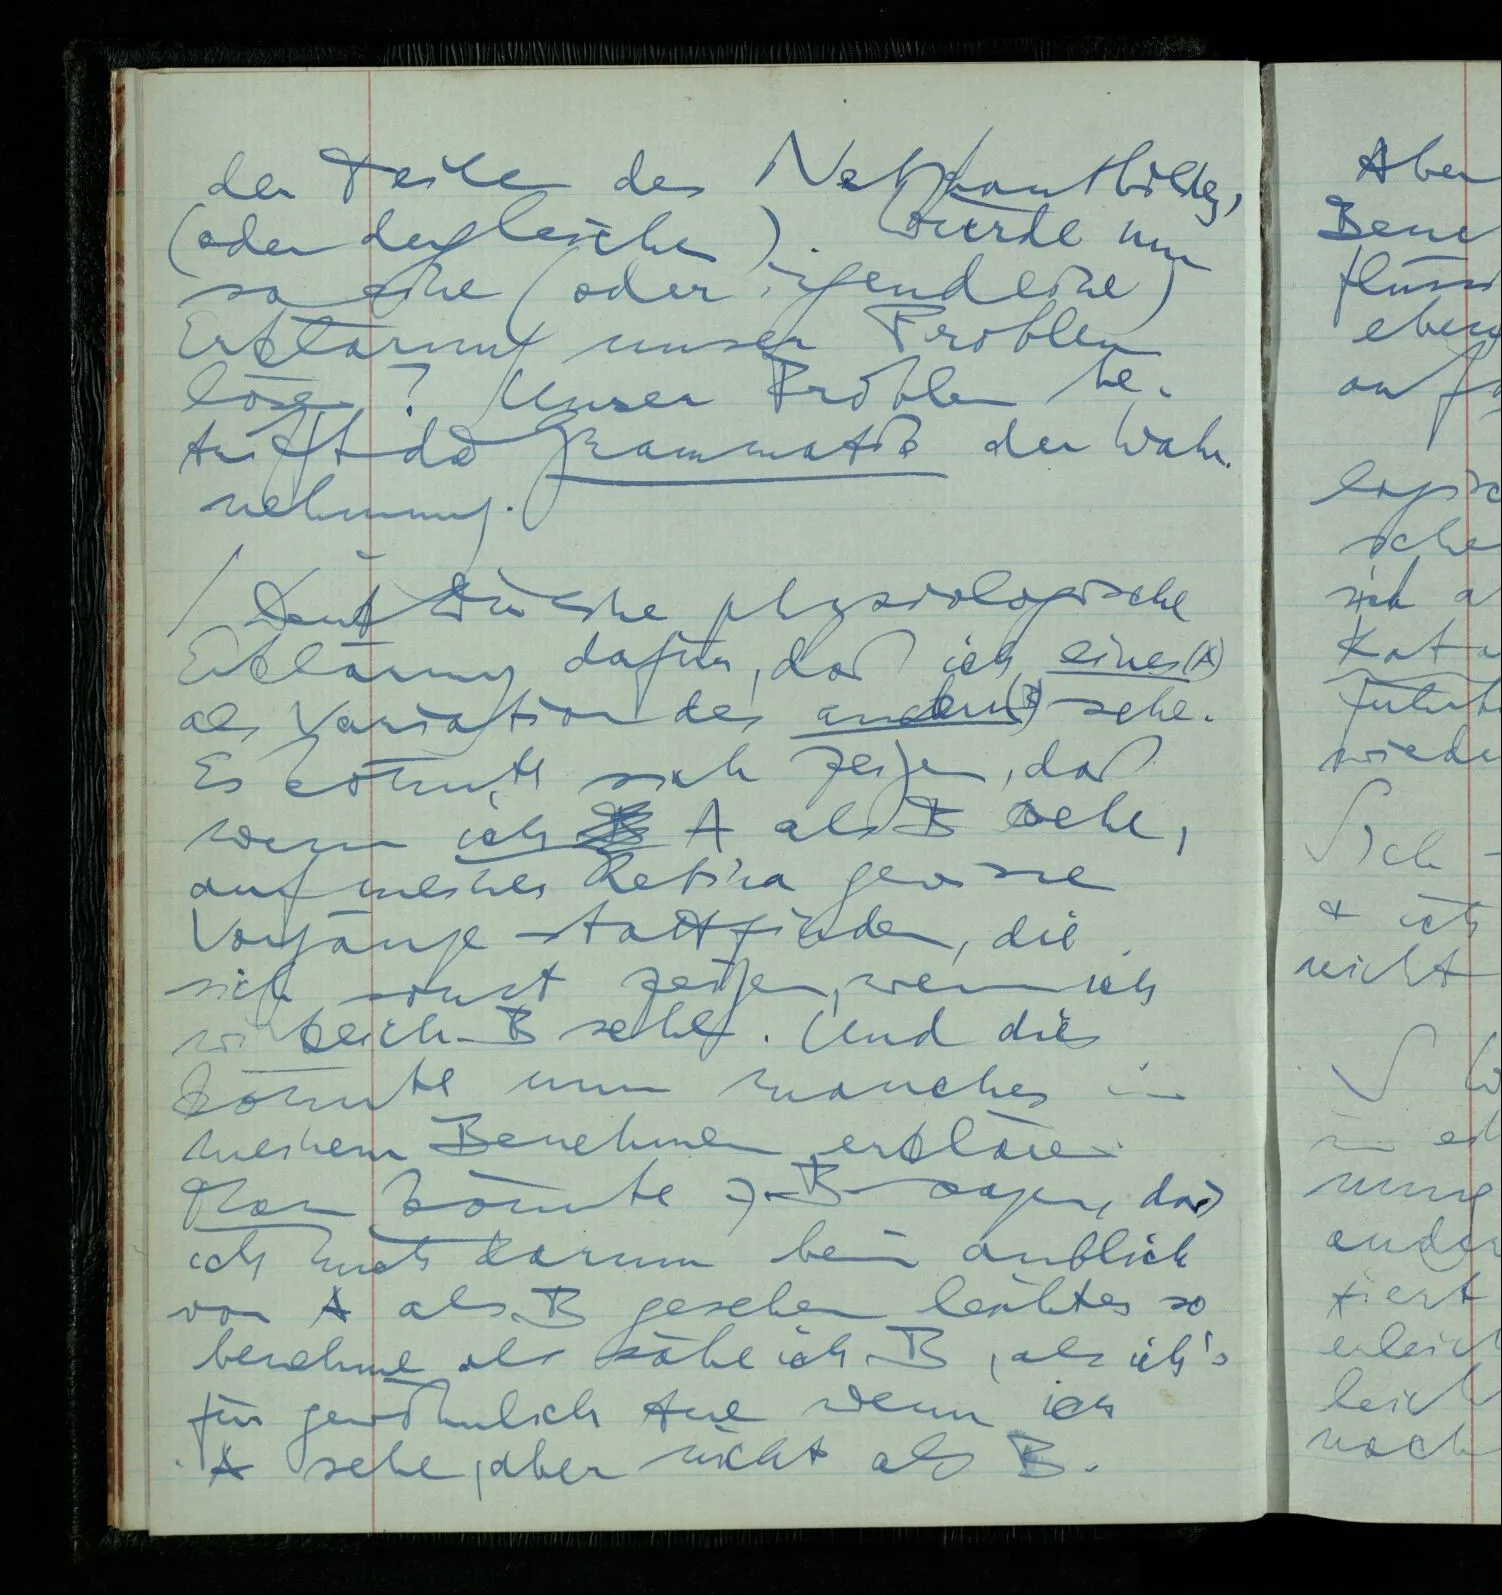 der Teile des Netzhautbildes,
(oder dergleichen). Würde nun
so eine (oder irgend eine)
Erklärung unser Problem
lösen? Unser Problem be-
trifft die Grammatik der Wahr-
nehmung.
/ Denk Dir eine physiologische
Erklärung dafür, daß ich eines (A)
als Variation des andern (B) sehe.
Es könnte sich zeigen, daß
wenn ich A als B sehe,
auf meiner Retina gewisse
Vorgänge stattfinden, die
sich sonst zeigen, wenn ich
wirklich B sehe. Und dies
könnte nun manches in
meinem Benehmen erklären.
Man könnte z.B. sagen, daß
ich mich darum beim Anblick
von A als B gesehen leichter so
benehme als sähe ich B, als ich's
für gewöhnlich tue wenn ich
A sehe, aber nicht als B.
Aber
eben
auf
sich
wieder
Ich
& ich
nicht
nach